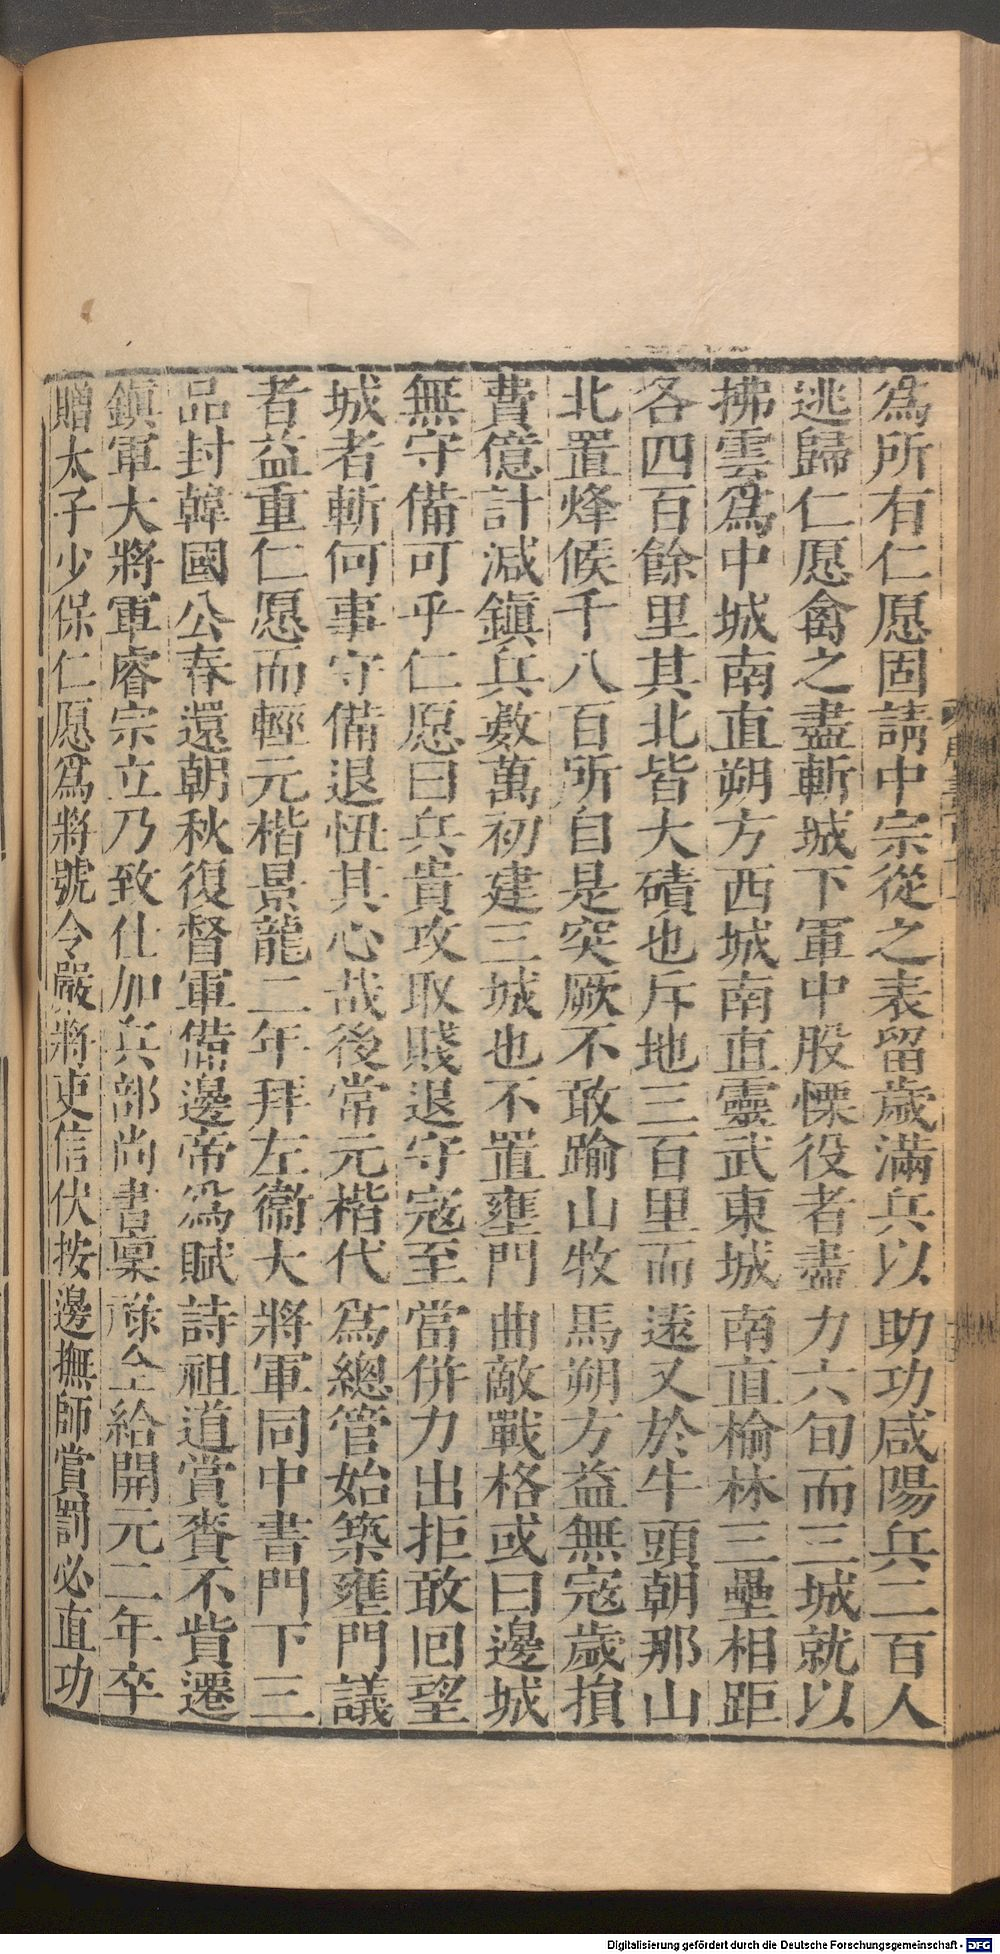 爲所有仁愿固請中宗從之表留歲滿兵以助功咸陽兵二百人
逃歸仁愿禽之盡斬城下軍中股慄役者盡力六旬而三城就以
拂雲爲中城南直朔方西城南直靈武東城南直榆林三壘相距
各四百餘里其北皆大磧也斥地三百里而遠又於牛頭朝那山
北置烽候千八百所自是突厥不敢踰山牧馬朔方益無寇歲損
費億計減鎭兵數萬初建三城也不置壅門曲敵戰格或曰邊城
無守備可乎仁愿曰兵貴攻取賤退守寇至當併力出拒敢回望
城者斬何事守備退忸其心哉後常元楷代爲總管始築壅門議
者益重仁愿而輕元楷景龍二年拜左衞大將軍同中書門下三
品封韓國公春還朝秋復督軍備邊帝爲賦詩祖道賞賚不貲遷
鎭軍大將軍睿宗立乃致仕加兵部尚書稟祿全給開元二年卒
贈太子少保仁愿爲將號令嚴將吏信伏按邊撫師賞罰必直功
Digitalisierung gefördert durch die Deutsche Forschungsgemeinschaft - DFG